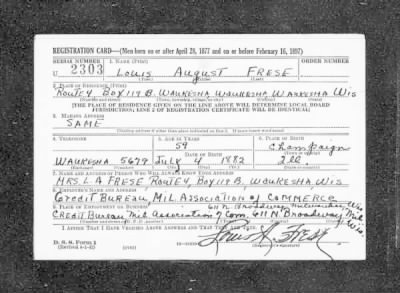 REGISTRATION CARD—(Men born on or after April 28, 1877 and on or before February 16, 1897)
SERIAL NUMBER 1. NAME (Print) ORDER NUMBER
U 2303 LOUIS AUGUST FRESE
(First) (Middle) (Last)
2. PLACE OF RESIDENCE (Print)
ROUTE 4, BOX 119 B. WAUKESHA WAUKESHA WAUKESHA WIS
(Number and street) (Town, township, village, or city) (County) (State)
[THE PLACE OF RESIDENCE GIVEN ON THE LINE ABOVE WILL DETERMINE LOCAL BOARD
JURISDICTION; LINE 2 OF REGISTRATION CERTIFICATE WILL BE IDENTICAL]
3. MAILING ADDRESS
SAME
[Mailing address if other than place indicated on line 2. If same insert word same]
4. TELEPHONE 5. AGE IN YEARS 6. PLACE OF BIRTH
59 Champaign
DATE OF BIRTH (Town or county)
WAUKESHA 5679 July 4 1882 Ill
(Exchange) (Number) (Mo.) (Day) (Yr.) (State or country)
7. NAME AND ADDRESS OF PERSON WHO WILL ALWAYS KNOW YOUR ADDRESS
MRS. L. A FRESE ROUTE 4, BOX 119 B. WAUKESHA WIS
8. EMPLOYER'S NAME AND ADDRESS
Credit Bureau, MIL. ASSOCIATION of COMMERCE
611 N. Broadway Milwaukee, Wis
9. PLACE OF EMPLOYMENT OR BUSINESS
CREDIT Bureau Mil Association of Com. 611 N. Broadway Mil
Wis.
(Number and street or R. F. D. number) (Town) (County) (State)
I AFFIRM THAT I HAVE VERIFIED ABOVE ANSWERS AND THAT THEY ARE TRUE.
D. S. S. Form 1
(Revised 4-1-42) (over)
Louis A. Frese